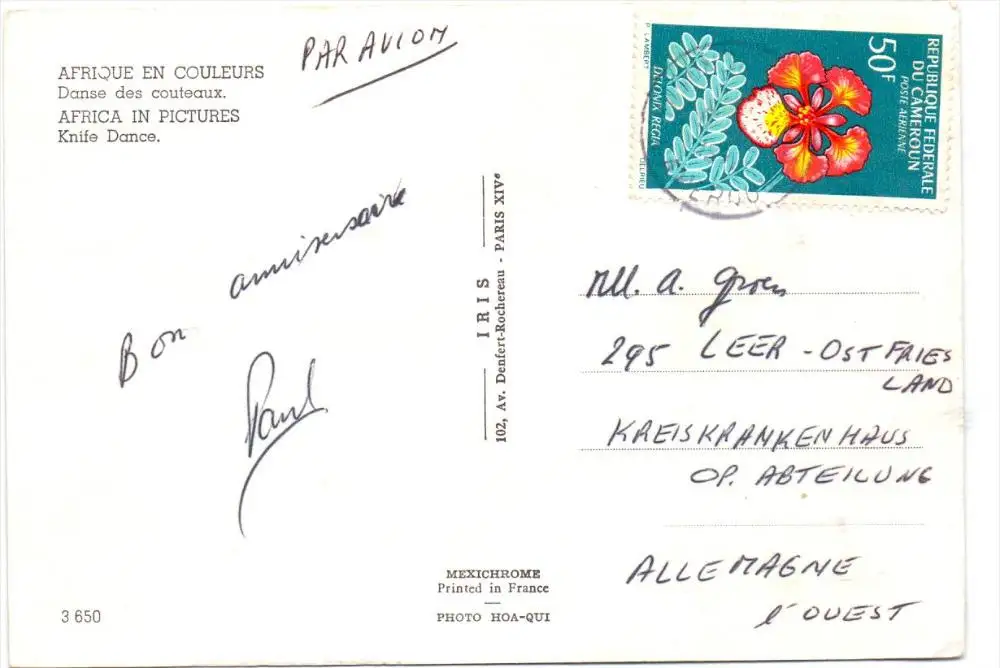 PAR AVION
AFRIQUE EN COULEURS
Danse des couteaux.
AFRICA IN PICTURES
Knife Dance.
Bon anniversaire
Paul
3 650
IRIS
102, Av. Denfert-Rochereau - PARIS XIVᵉ
MEXICHROME
Printed in France
PHOTO HOA-QUI
REPUBLIQUE FEDERALE
DU CAMEROUN
POSTE AERIENNE
50F
DELONIX REGIA
P. LAMBERT
DELRIEU
A.
295 LEER - OSTFRIES
LAND
KREISKRANKENHAUS
OP. ABTEILUNG
ALLEMAGNE
l'OUEST